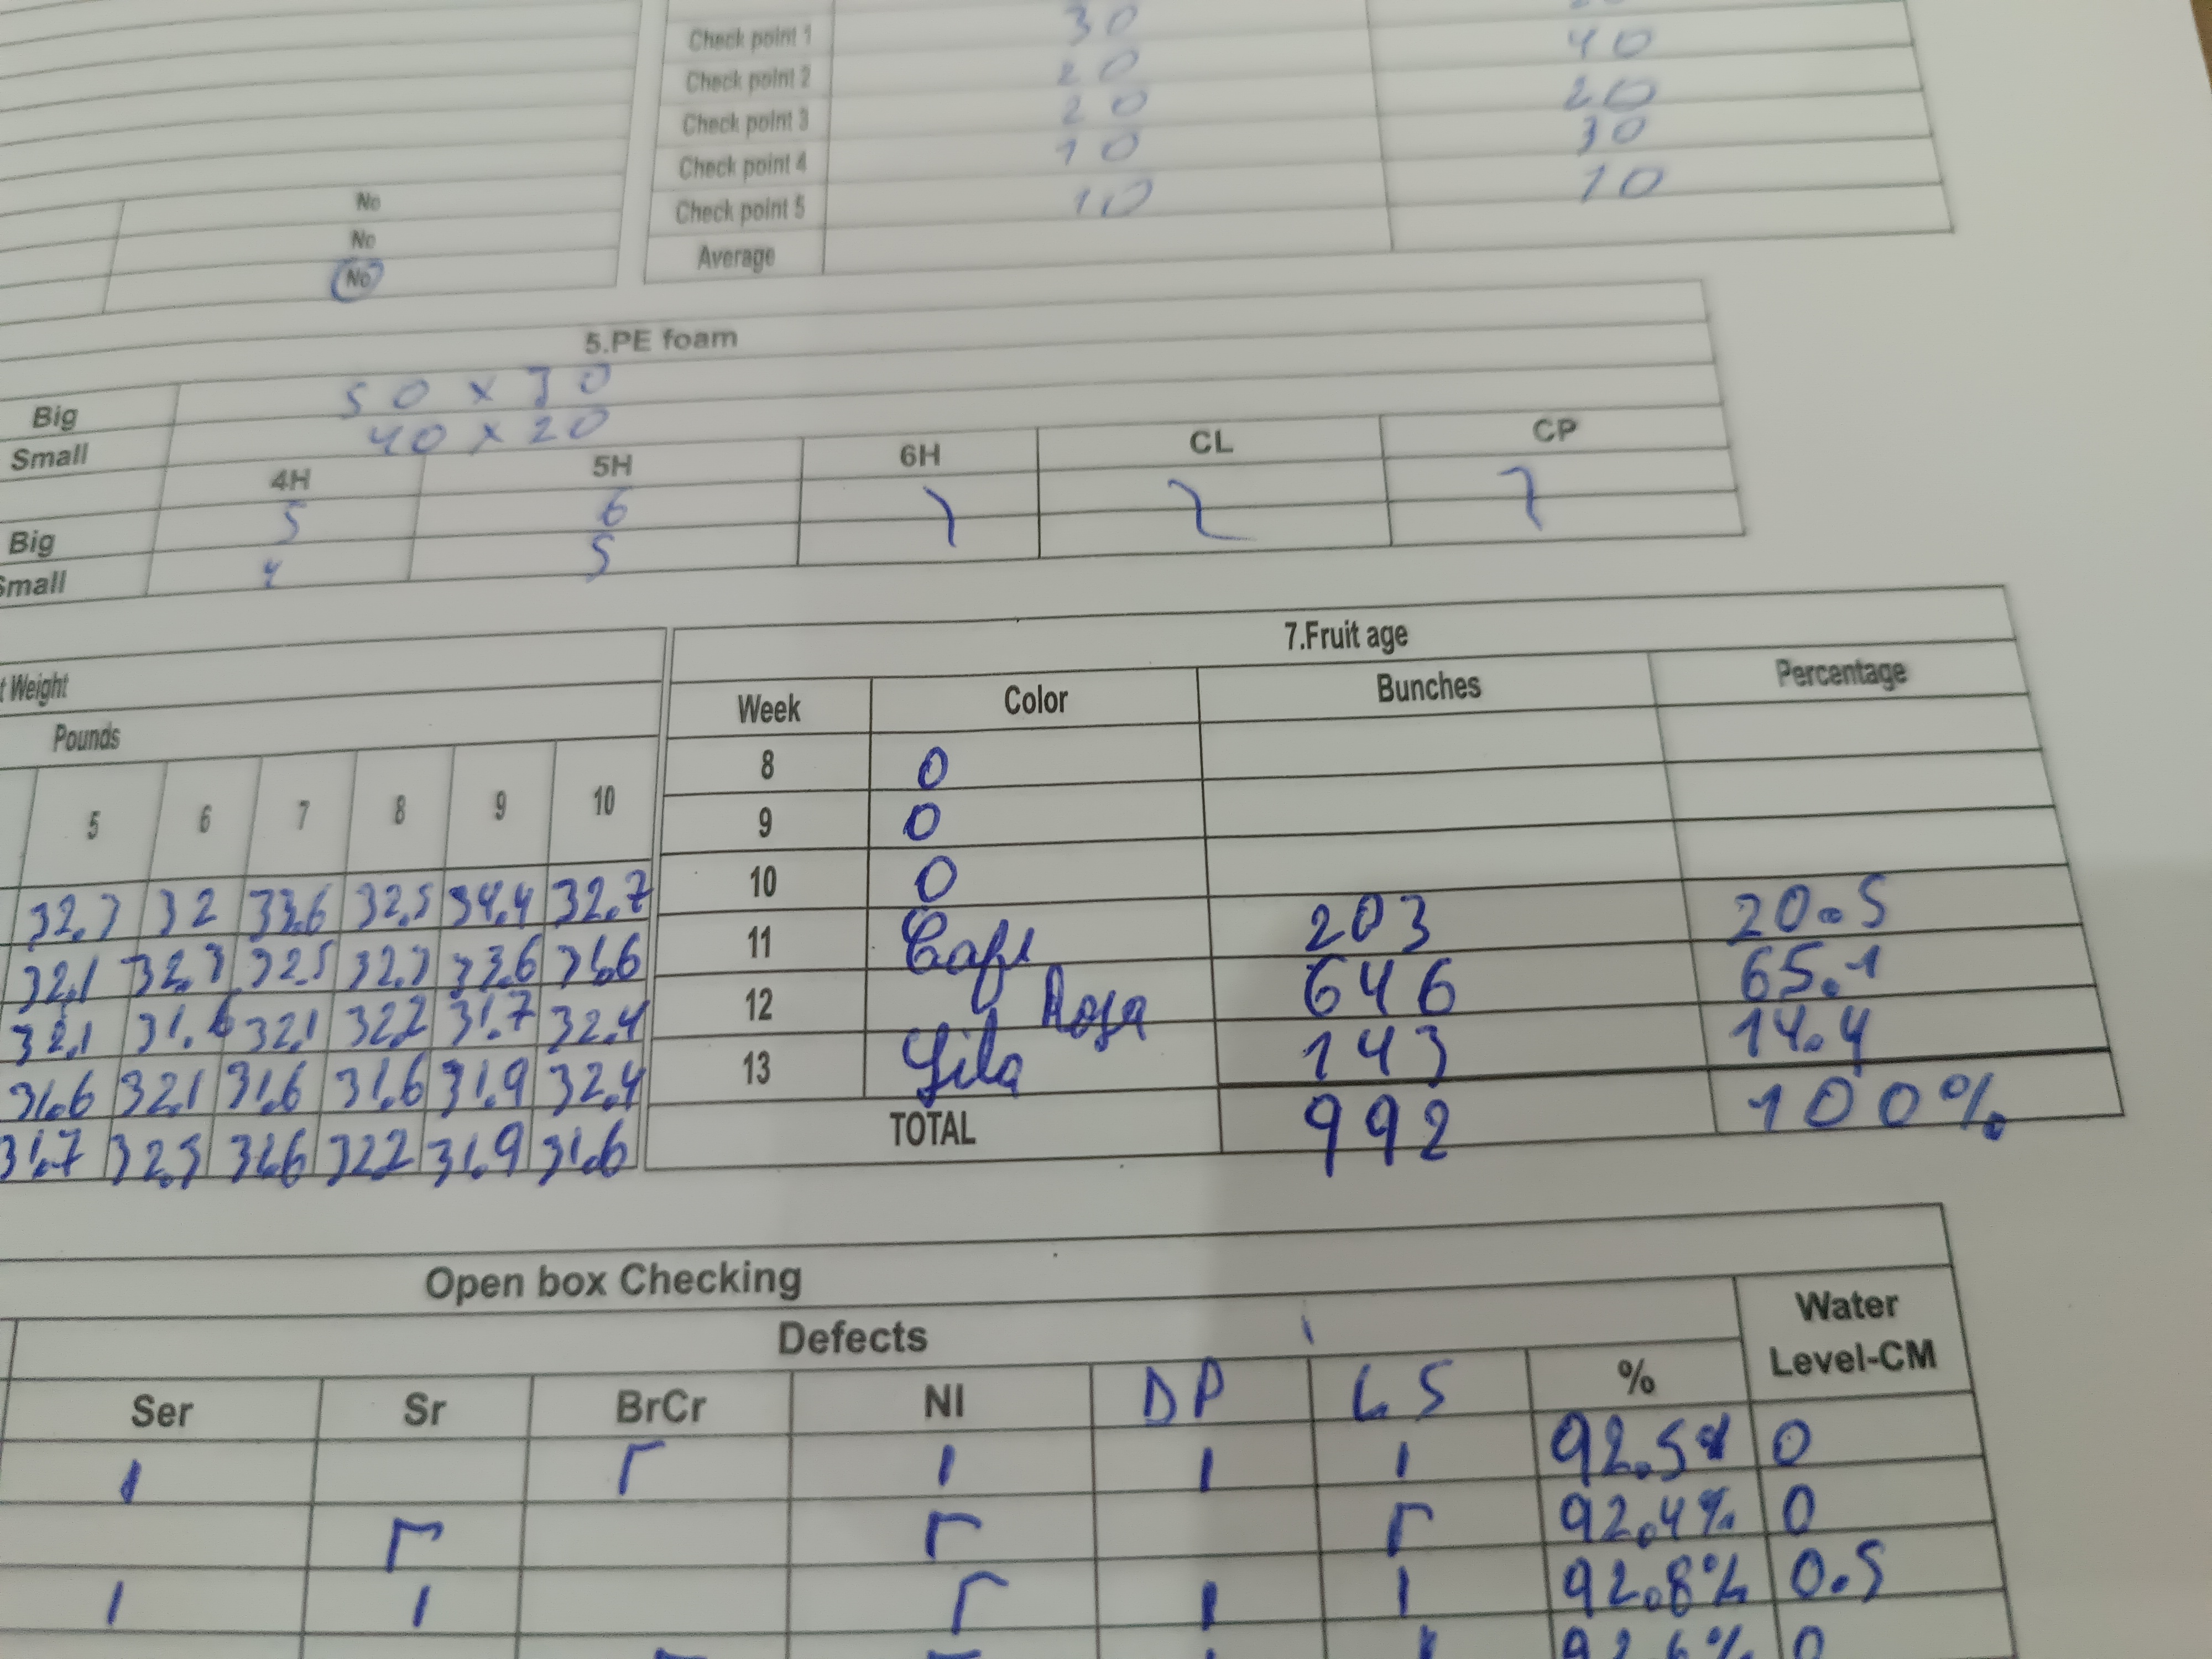 Check point 1 30 40
Check point 2 20 20
Check point 3 20 30
Check point 4 10 10
Check point 5 10
Average
No
No
No
5.PE foam
Big 50 x 30
Small 40 x 20
4H 5H 6H CL CP
Big 5 6
Small 4 5
t Weight
Pounds
5 6 7 8 9 10
32.3 32 33.6 32.5 34.4 32.7
32.1 32.3 32.5 32.3 33.6 31.6
32.1 31.6 32.1 32.2 31.7 32.4
31.6 32.1 31.6 31.6 31.9 32.4
31.7 32.3 31.6 32.2 31.9 31.6
7.Fruit age
Week Color Bunches Percentage
8 0
9 0
10 0
11 Cafe 203 20.5
12 Rosa 646 65.1
13 Lila 143 14.4
TOTAL 992 100%
Open box Checking
Defects
Water Level-CM
Ser Sr BrCr NI DP LS %
1 1 1 1 92.5% 0
92.4% 0
1 1 1 1 92.8% 0.5
92.6% 0